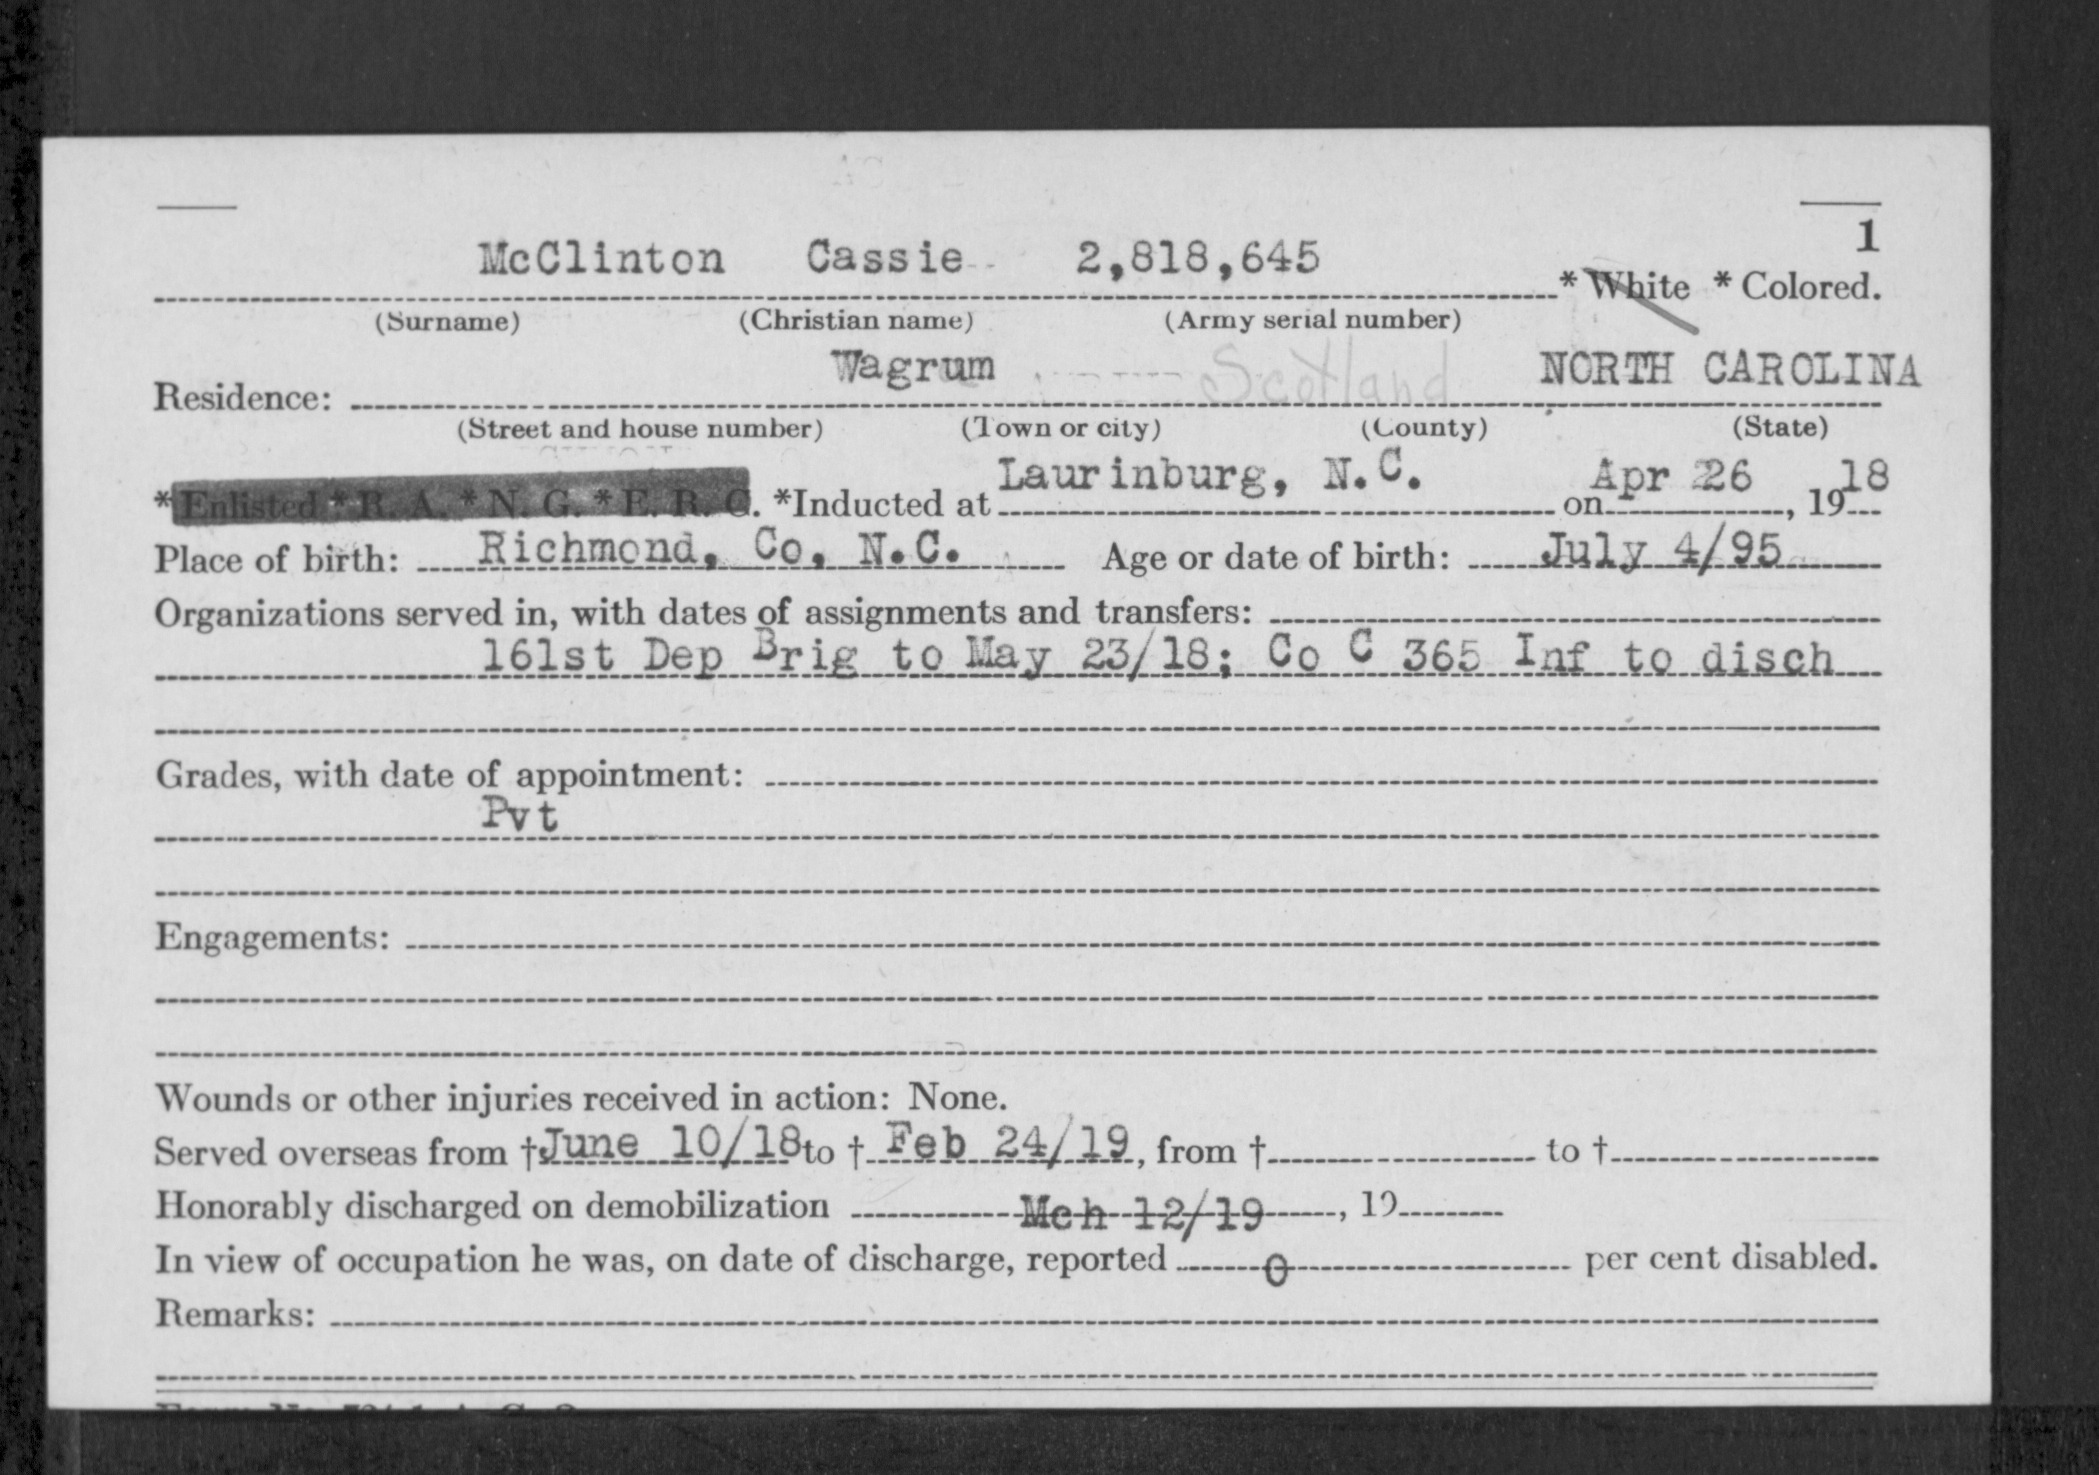 1
McClinton Cassie 2,818,645 * White * Colored.
(Surname) (Christian name) (Army serial number)
Residence: Wagrum Scotland NORTH CAROLINA
(Street and house number) (Town or city) (County) (State)
* Enlisted * R. A. * N. G. * E. R. C. *Inducted at Laurinburg, N.C. on Apr 26, 1918
Place of birth: Richmond, Co, N.C. Age or date of birth: July 4/95
Organizations served in, with dates of assignments and transfers:
161st Dep Brig to May 23/18; Co C 365 Inf to disch
Grades, with date of appointment:
Pvt
Engagements:
Wounds or other injuries received in action: None.
Served overseas from † June 10/18 to † Feb 24/19, from † to †
Honorably discharged on demobilization Mch 12/19, 19
In view of occupation he was, on date of discharge, reported 0 per cent disabled.
Remarks: